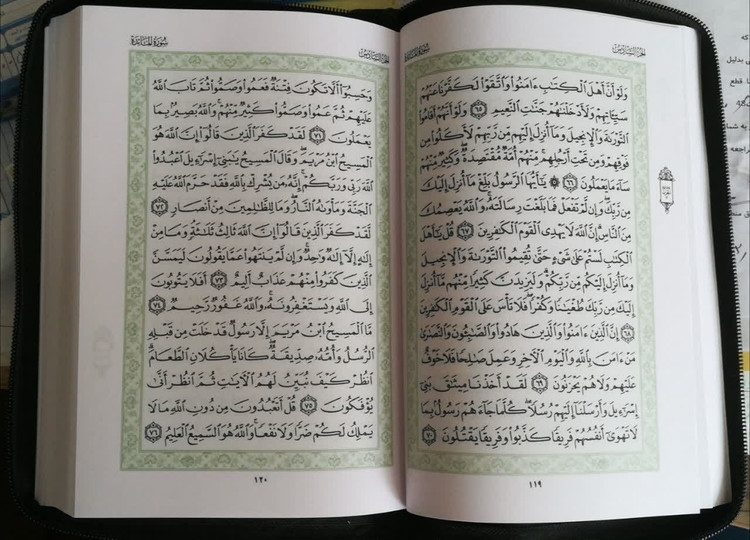 الجزء السادس
سورة المائدة
وَلَوْ أَنَّ أَهْلَ ٱلْكِتَٰبِ ءَامَنُوا۟ وَٱتَّقَوْا۟ لَكَفَّرْنَا عَنْهُمْ
سَيِّـَٔاتِهِمْ وَلَأَدْخَلْنَٰهُمْ جَنَّٰتِ ٱلنَّعِيمِ ٦٥ وَلَوْ أَنَّهُمْ أَقَامُوا۟
ٱلتَّوْرَىٰةَ وَٱلْإِنجِيلَ وَمَآ أُنزِلَ إِلَيْهِم مِّن رَّبِّهِمْ لَأَكَلُوا۟ مِن
فَوْقِهِمْ وَمِن تَحْتِ أَرْجُلِهِم مِّنْهُمْ أُمَّةٌ مُّقْتَصِدَةٌ وَكَثِيرٌ مِّنْهُمْ
سَآءَ مَا يَعْمَلُونَ ٦٦ ۞ يَٰٓأَيُّهَا ٱلرَّسُولُ بَلِّغْ مَآ أُنزِلَ إِلَيْكَ
مِن رَّبِّكَ وَإِن لَّمْ تَفْعَلْ فَمَا بَلَّغْتَ رِسَالَتَهُۥ وَٱللَّهُ يَعْصِمُكَ
مِنَ ٱلنَّاسِ إِنَّ ٱللَّهَ لَا يَهْدِى ٱلْقَوْمَ ٱلْكَٰفِرِينَ ٦٧ قُلْ يَٰٓأَهْلَ
ٱلْكِتَٰبِ لَسْتُمْ عَلَىٰ شَىْءٍ حَتَّىٰ تُقِيمُوا۟ ٱلتَّوْرَىٰةَ وَٱلْإِنجِيلَ
وَمَآ أُنزِلَ إِلَيْكُم مِّن رَّبِّكُمْ وَلَيَزِيدَنَّ كَثِيرًا مِّنْهُم مَّآ أُنزِلَ
إِلَيْكَ مِن رَّبِّكَ طُغْيَٰنًا وَكُفْرًا فَلَا تَأْسَ عَلَى ٱلْقَوْمِ ٱلْكَٰفِرِينَ
٦٨ إِنَّ ٱلَّذِينَ ءَامَنُوا۟ وَٱلَّذِينَ هَادُوا۟ وَٱلصَّٰبِـُٔونَ وَٱلنَّصَٰرَىٰ
مَنْ ءَامَنَ بِٱللَّهِ وَٱلْيَوْمِ ٱلْءَاخِرِ وَعَمِلَ صَٰلِحًا فَلَا خَوْفٌ
عَلَيْهِمْ وَلَا هُمْ يَحْزَنُونَ ٦٩ لَقَدْ أَخَذْنَا مِيثَٰقَ بَنِىٓ
إِسْرَٰٓءِيلَ وَأَرْسَلْنَآ إِلَيْهِمْ رُسُلًا كُلَّمَا جَآءَهُمْ رَسُولٌۢ بِمَا
لَا تَهْوَىٰٓ أَنفُسُهُمْ فَرِيقًا كَذَّبُوا۟ وَفَرِيقًا يَقْتُلُونَ ٧٠
١١٩
الجزء السادس
سورة المائدة
وَحَسِبُوٓا۟ أَلَّا تَكُونَ فِتْنَةٌ فَعَمُوا۟ وَصَمُّوا۟ ثُمَّ تَابَ ٱللَّهُ
عَلَيْهِمْ ثُمَّ عَمُوا۟ وَصَمُّوا۟ كَثِيرٌ مِّنْهُمْ وَٱللَّهُ بَصِيرٌۢ بِمَا
يَعْمَلُونَ ٧١ لَقَدْ كَفَرَ ٱلَّذِينَ قَالُوٓا۟ إِنَّ ٱللَّهَ هُوَ
ٱلْمَسِيحُ ٱبْنُ مَرْيَمَ وَقَالَ ٱلْمَسِيحُ يَٰبَنِىٓ إِسْرَٰٓءِيلَ ٱعْبُدُوا۟
ٱللَّهَ رَبِّى وَرَبَّكُمْ إِنَّهُۥ مَن يُشْرِكْ بِٱللَّهِ فَقَدْ حَرَّمَ ٱللَّهُ عَلَيْهِ
ٱلْجَنَّةَ وَمَأْوَىٰهُ ٱلنَّارُ وَمَا لِلظَّٰلِمِينَ مِنْ أَنصَارٍ ٧٢
لَّقَدْ كَفَرَ ٱلَّذِينَ قَالُوٓا۟ إِنَّ ٱللَّهَ ثَالِثُ ثَلَٰثَةٍ وَمَا مِنْ
إِلَٰهٍ إِلَّآ إِلَٰهٌ وَٰحِدٌ وَإِن لَّمْ يَنتَهُوا۟ عَمَّا يَقُولُونَ لَيَمَسَّنَّ
ٱلَّذِينَ كَفَرُوا۟ مِنْهُمْ عَذَابٌ أَلِيمٌ ٧٣ أَفَلَا يَتُوبُونَ
إِلَى ٱللَّهِ وَيَسْتَغْفِرُونَهُۥ وَٱللَّهُ غَفُورٌ رَّحِيمٌ ٧٤
مَّا ٱلْمَسِيحُ ٱبْنُ مَرْيَمَ إِلَّا رَسُولٌ قَدْ خَلَتْ مِن قَبْلِهِ
ٱلرُّسُلُ وَأُمُّهُۥ صِدِّيقَةٌ كَانَا يَأْكُلَانِ ٱلطَّعَامَ
ٱنظُرْ كَيْفَ نُبَيِّنُ لَهُمُ ٱلْءَايَٰتِ ثُمَّ ٱنظُرْ أَنَّىٰ
يُؤْفَكُونَ ٧٥ قُلْ أَتَعْبُدُونَ مِن دُونِ ٱللَّهِ مَا لَا
يَمْلِكُ لَكُمْ ضَرًّا وَلَا نَفْعًا وَٱللَّهُ هُوَ ٱلسَّمِيعُ ٱلْعَلِيمُ ٧٦
١٢٠